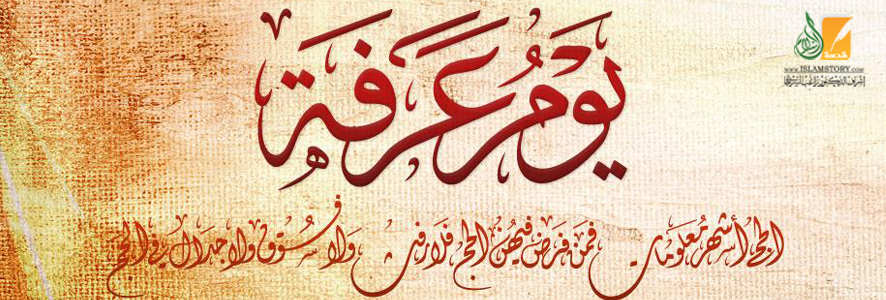 يَوْمُ عَرَفَة
الحج أشهر معلومات فمن فرض فيهن الحج فلا رفث ولا فسوق ولا جدال في الحج
قصة الإسلام
www.ISLAMSTORY.COM
إشراف الدكتور راغب السرجاني